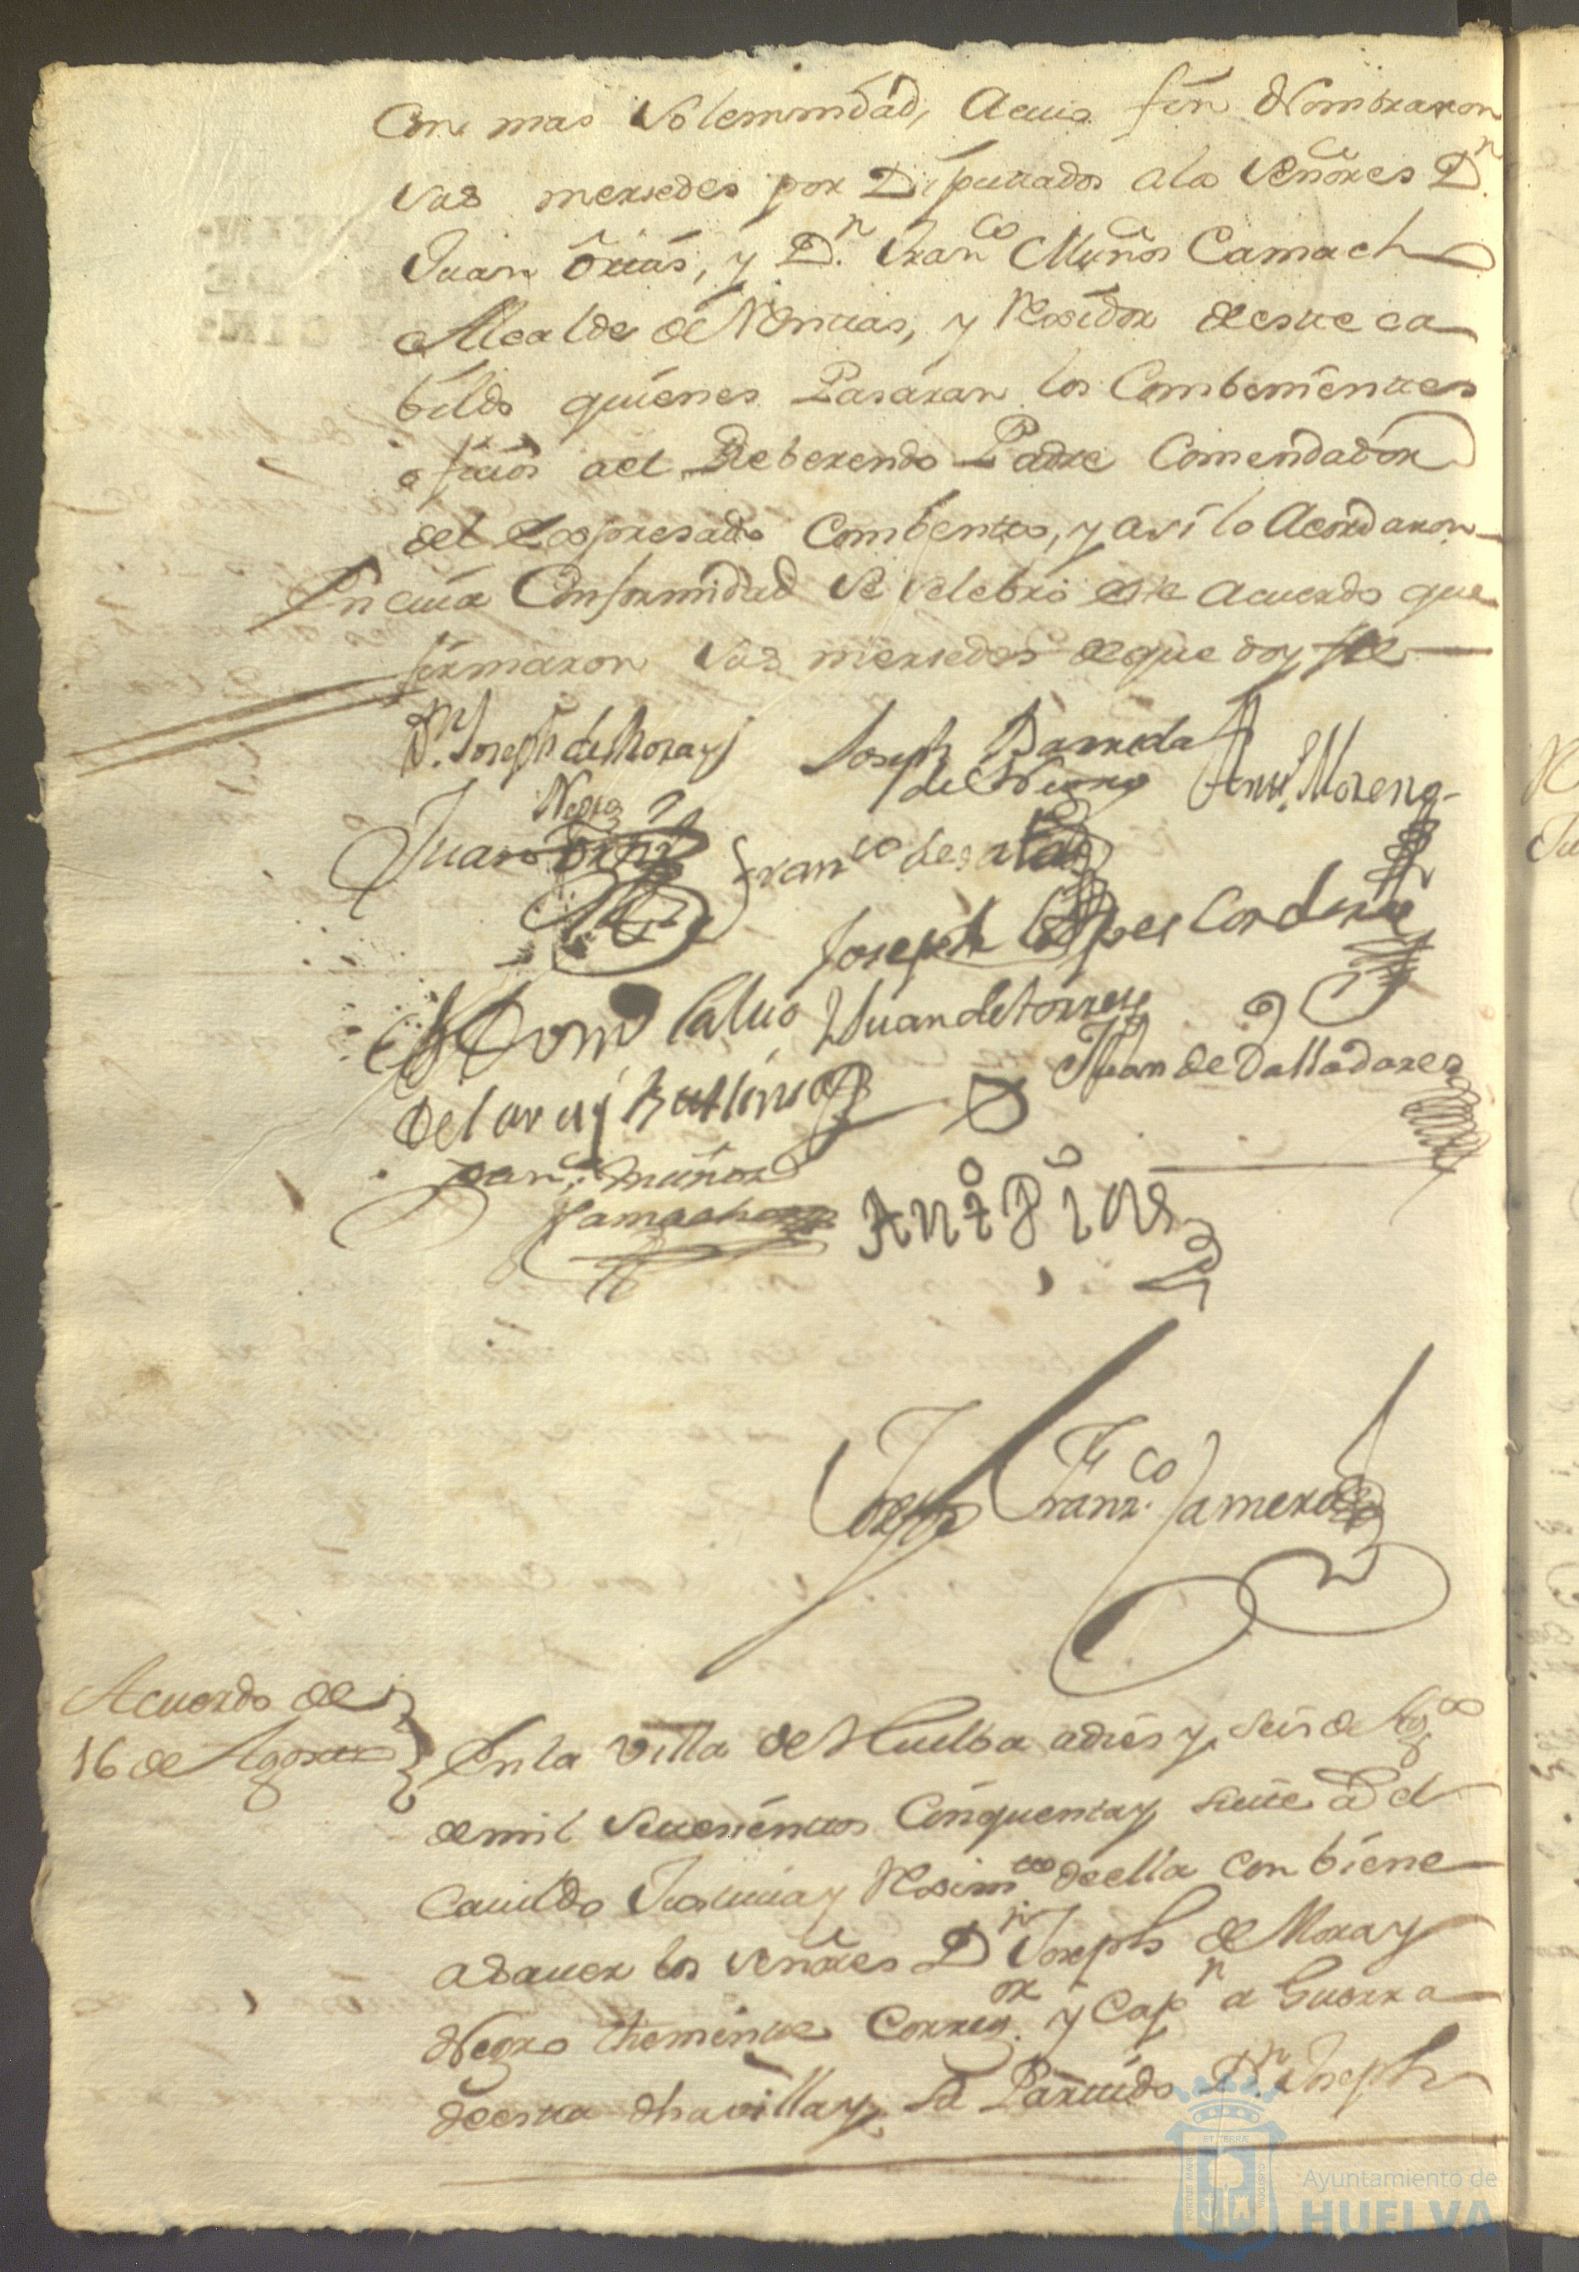 Con mas Solemnidad, Acuio fin Nombraron
Sus mersedes por Diputados alos Señores Dn.
Juan Ortiz, y Dn. Franco Muños Camacho
Alcalde de Millones, y Rexidor deeste ca
bildo quienes Pasaran los Combenientes
ofizios ael Reberendo Padre Comendador
del Expresado Combento, y assi lo Acordaron
En cuia Conformidad se selebró este acuerdo que
firmaron Sus mersedes deque doy fee
Dn. Joseph de Mora y
Negro
Joseph Barreda
de
Antt. Moreno
Juan Ortiz
Franco de
Joseph Lopez Cordero
Calvo
Juan de torres
Juan de Valladares
Franco. Muñoz
Camacho
Antto Pino
Joseph Franzco. Jamera
Acuerdo de
16 de Agosto
En la Villa de Huelba adies y seis de Agto
demil Setesientos Cinquenta y siete a el
Cauildo Justicia y Reximto deella conbiene
asauer los Señores Dn Joseph de Mora y
Negro theniente Corregor. y Capn a Guerra
deesta dha villa y su Partido Dn. Joseph
Ayuntamiento de
HUELVA